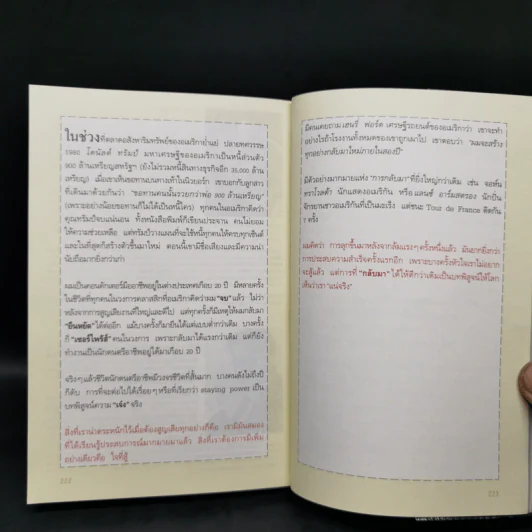 ในช่วงที่ตลาดอสังหาริมทรัพย์ของอเมริกาย่ำแย่ ปลายทศวรรษ
1980 โดนัลด์ ทรัมป์ มหาเศรษฐีของอเมริกาเป็นหนี้ส่วนตัว
900 ล้านเหรียญสหรัฐฯ (ยังไม่รวมหนี้สินทางธุรกิจอีก 35,000 ล้าน
เหรียญ) เมื่อเขาเห็นขอทานบนทางเท้าในนิวยอร์ก เขาบอกกับลูกสาว
ที่เดินมาด้วยกันว่า "ขอทานคนนั้นรวยกว่าพ่อ 900 ล้านเหรียญ"
(เพราะอย่างน้อยขอทานก็ไม่ได้เป็นหนี้ใคร) ทุกคนในอเมริกาคิดว่า
คุณทรัมป์จบแน่นอน ทั้งหนังสือพิมพ์ก็เขียนประจาน คนไม่ยอม
ให้ความช่วยเหลือ แต่ทรัมป์วางแผนที่จะใช้หนี้ทุกคนให้ครบทุกเซ็นต์
และในที่สุดก็สร้างตัวขึ้นมาใหม่ ตอนนี้เขามีชื่อเสียงและมีความน่า
นับถือมากยิ่งกว่าเก่า
ผมเป็นคอนดักเตอร์มืออาชีพอยู่ในต่างประเทศเกือบ 20 ปี มีหลายครั้ง
ในชีวิตที่ทุกคนในวงการคลาสสิกที่อเมริกาคิดว่าผม "จบ" แล้ว ไม่ว่า
หลังจากการสูญเสียงานที่ใหญ่และดีไป แต่ทุกครั้งก็มีเหตุให้ผมกลับมา
"ยืนหยัด" ได้ต่ออีก แม้บางครั้งก็มายืนได้แต่แบบต่ำกว่าเดิม บางครั้ง
ก็ "เซอร์ไพร์ส์" คนในวงการ เพราะกลับมาได้แรงกว่าเดิม แต่ก็ยัง
ทำงานเป็นนักดนตรีอาชีพอยู่ได้มาเกือบ 20 ปี
จริงๆ แล้วชีวิตนักดนตรีอาชีพมีวงจรชีวิตที่สั้นมาก บางคนดังไม่ถึงปี
ก็ดับ การที่จะต่อไปได้เรื่อยๆ หรือที่เรียกว่า staying power เป็น
บทพิสูจน์ความ "เจ๋ง" จริง
สิ่งที่เราน่าตระหนักไว้เมื่อต้องสูญเสียทุกอย่างก็คือ เรามีมันสมอง
ที่ได้เรียนรู้ประสบการณ์มากมายมาแล้ว สิ่งที่เราต้องการมีเพิ่ม
อย่างเดียวคือ ใจที่สู้
222
มีคนเคยถาม เฮนรี่ ฟอร์ด เศรษฐีรถยนต์ของอเมริกาว่า เขาจะทำ
อย่างไรถ้าโรงงานทั้งหมดของเขาถูกเผาไป เขาตอบว่า "ผมจะสร้าง
ทุกอย่างกลับมาใหม่ภายในสองปี"
มีตัวอย่างมากมายแห่ง "การกลับมา" ที่ยิ่งใหญ่กว่าเดิม เช่น จอห์น
ทราโวลต้า นักแสดงอเมริกัน หรือ แลนซ์ อาร์มสตรอง นักปั่น
จักรยานชาวอเมริกันที่เป็นมะเร็ง แต่ชนะ Tour de France ติดกัน
7 ครั้ง
ผมคิดว่า การลุกขึ้นมาหลังจากล้มแรงๆ ครั้งหนึ่งแล้ว มันยากยิ่งกว่า
การประสบความสำเร็จครั้งแรกอีก เพราะบางครั้งหัวใจเราไม่อยาก
จะสู้แล้ว แต่การที่ "กลับมา" ได้ให้ดีกว่าเดิมเป็นบทพิสูจน์ให้โลก
เห็นว่าเรา "แน่จริง"
223